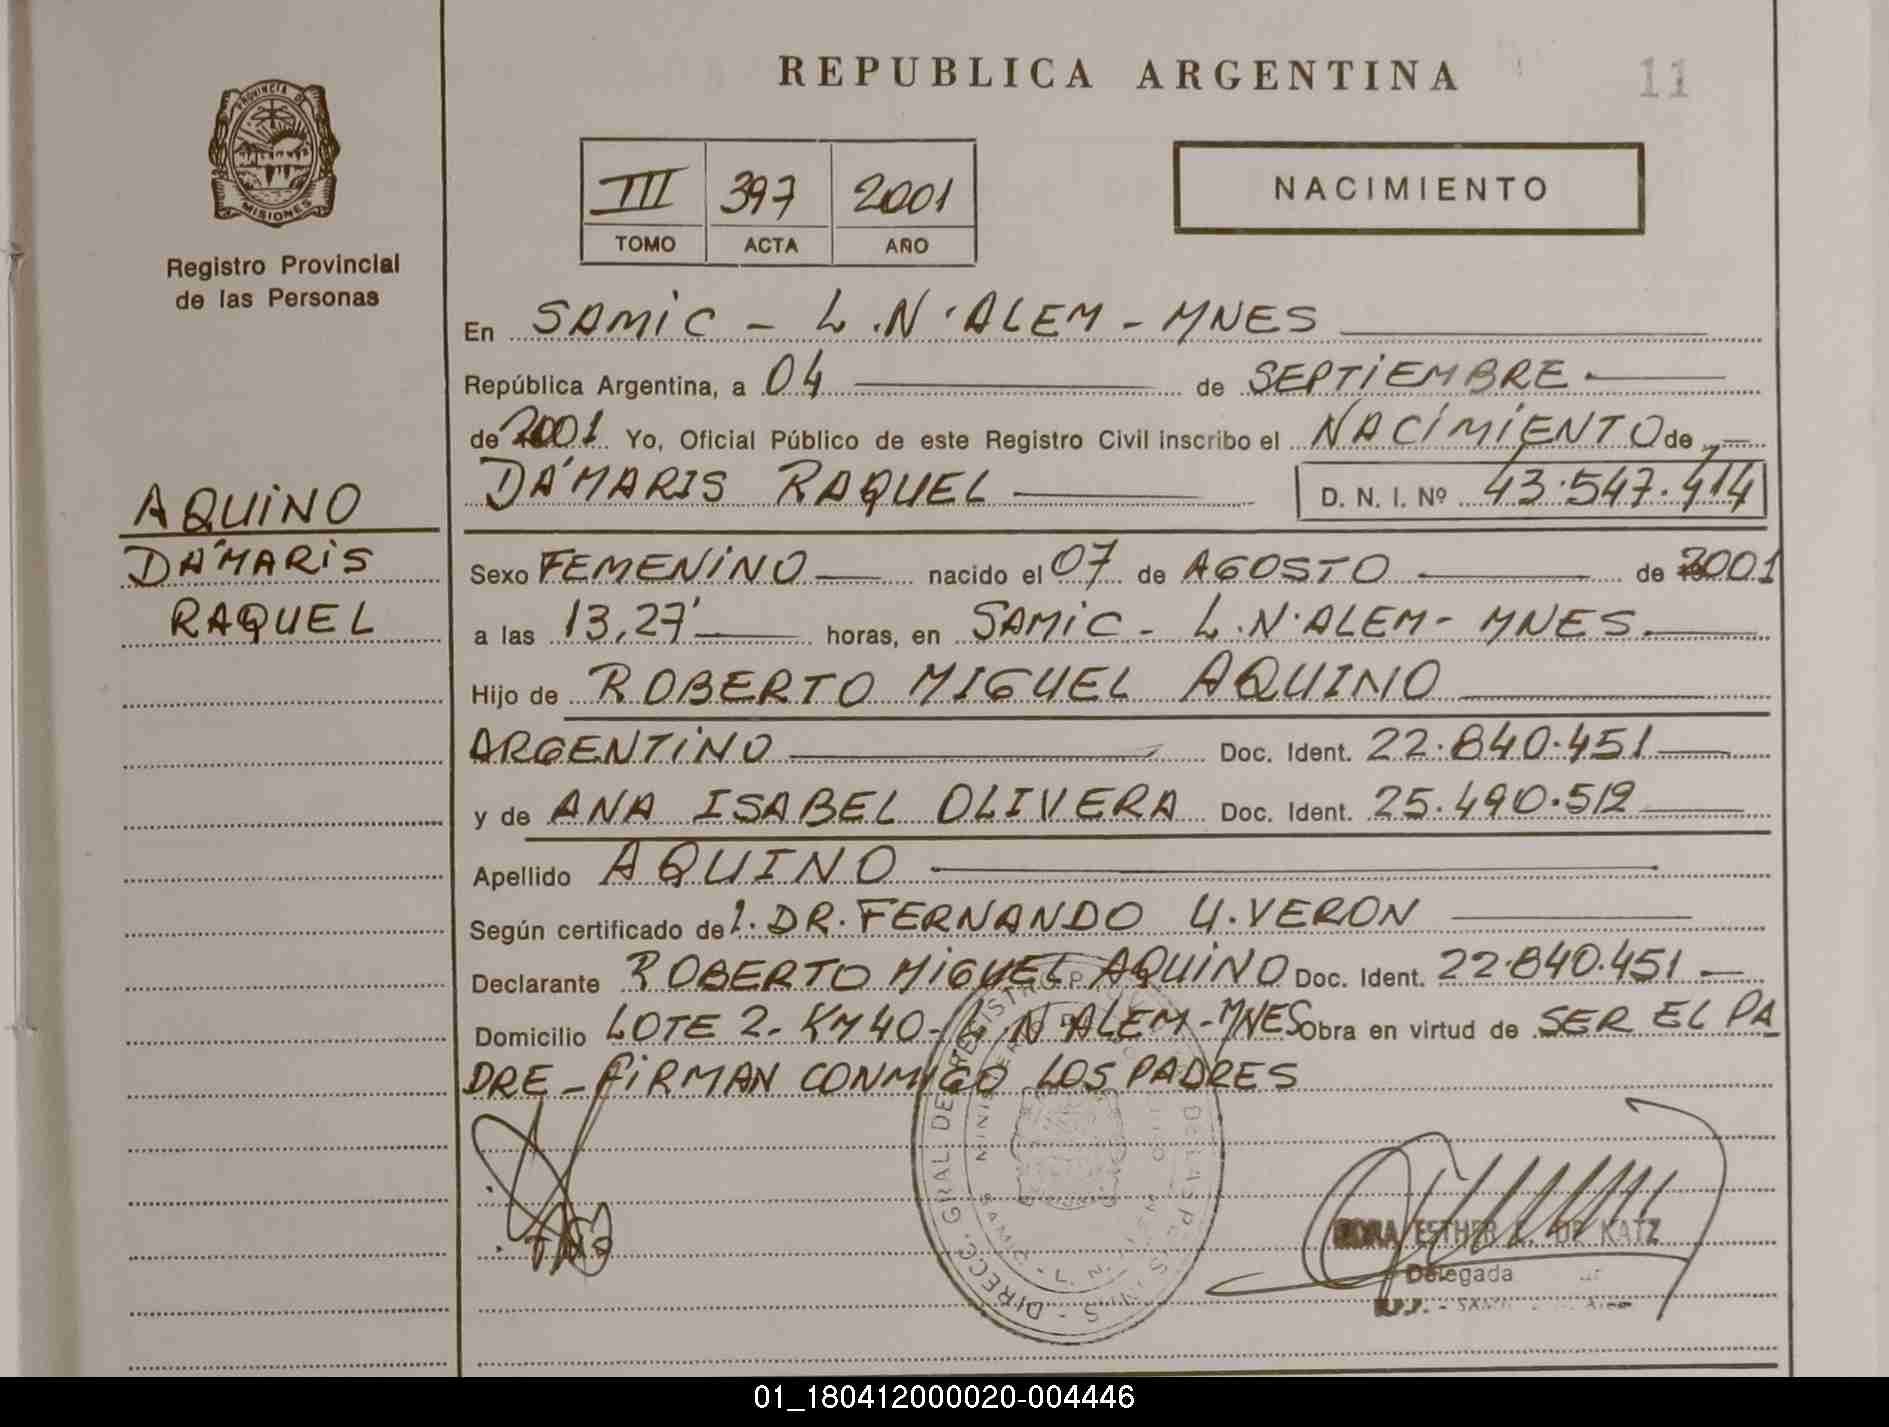 REPUBLICA ARGENTINA
11
PROVINCIA DE
MISIONES
Registro Provincial
de las Personas
III 397 2001
TOMO ACTA AÑO
NACIMIENTO
En SAMIC - L.N.ALEM - MNES
República Argentina, a 04 de SEPTIEMBRE
de 2001 Yo, Oficial Público de este Registro Civil inscribo el NACIMIENTO de
DÁMARIS RAQUEL D. N. I. Nº 43.547.414
AQUINO
DÁMARIS
RAQUEL
Sexo FEMENINO nacido el 07 de AGOSTO de 2001
a las 13,27' horas, en SAMIC - L.N.ALEM - MNES.
Hijo de ROBERTO MIGUEL AQUINO
ARGENTINO Doc. Ident. 22.840.451
y de ANA ISABEL OLIVERA Doc. Ident. 25.490.512
Apellido AQUINO
Según certificado de 1. DR. FERNANDO U. VERON
Declarante ROBERTO MIGUEL AQUINO Doc. Ident. 22.840.451
Domicilio LOTE 2. KM 40 - L.N ALEM - MNES Obra en virtud de SER EL PA
DRE - FIRMAN CONMIGO LOS PADRES
ESTHER DE KATZ
Delegada
01_180412000020-004446